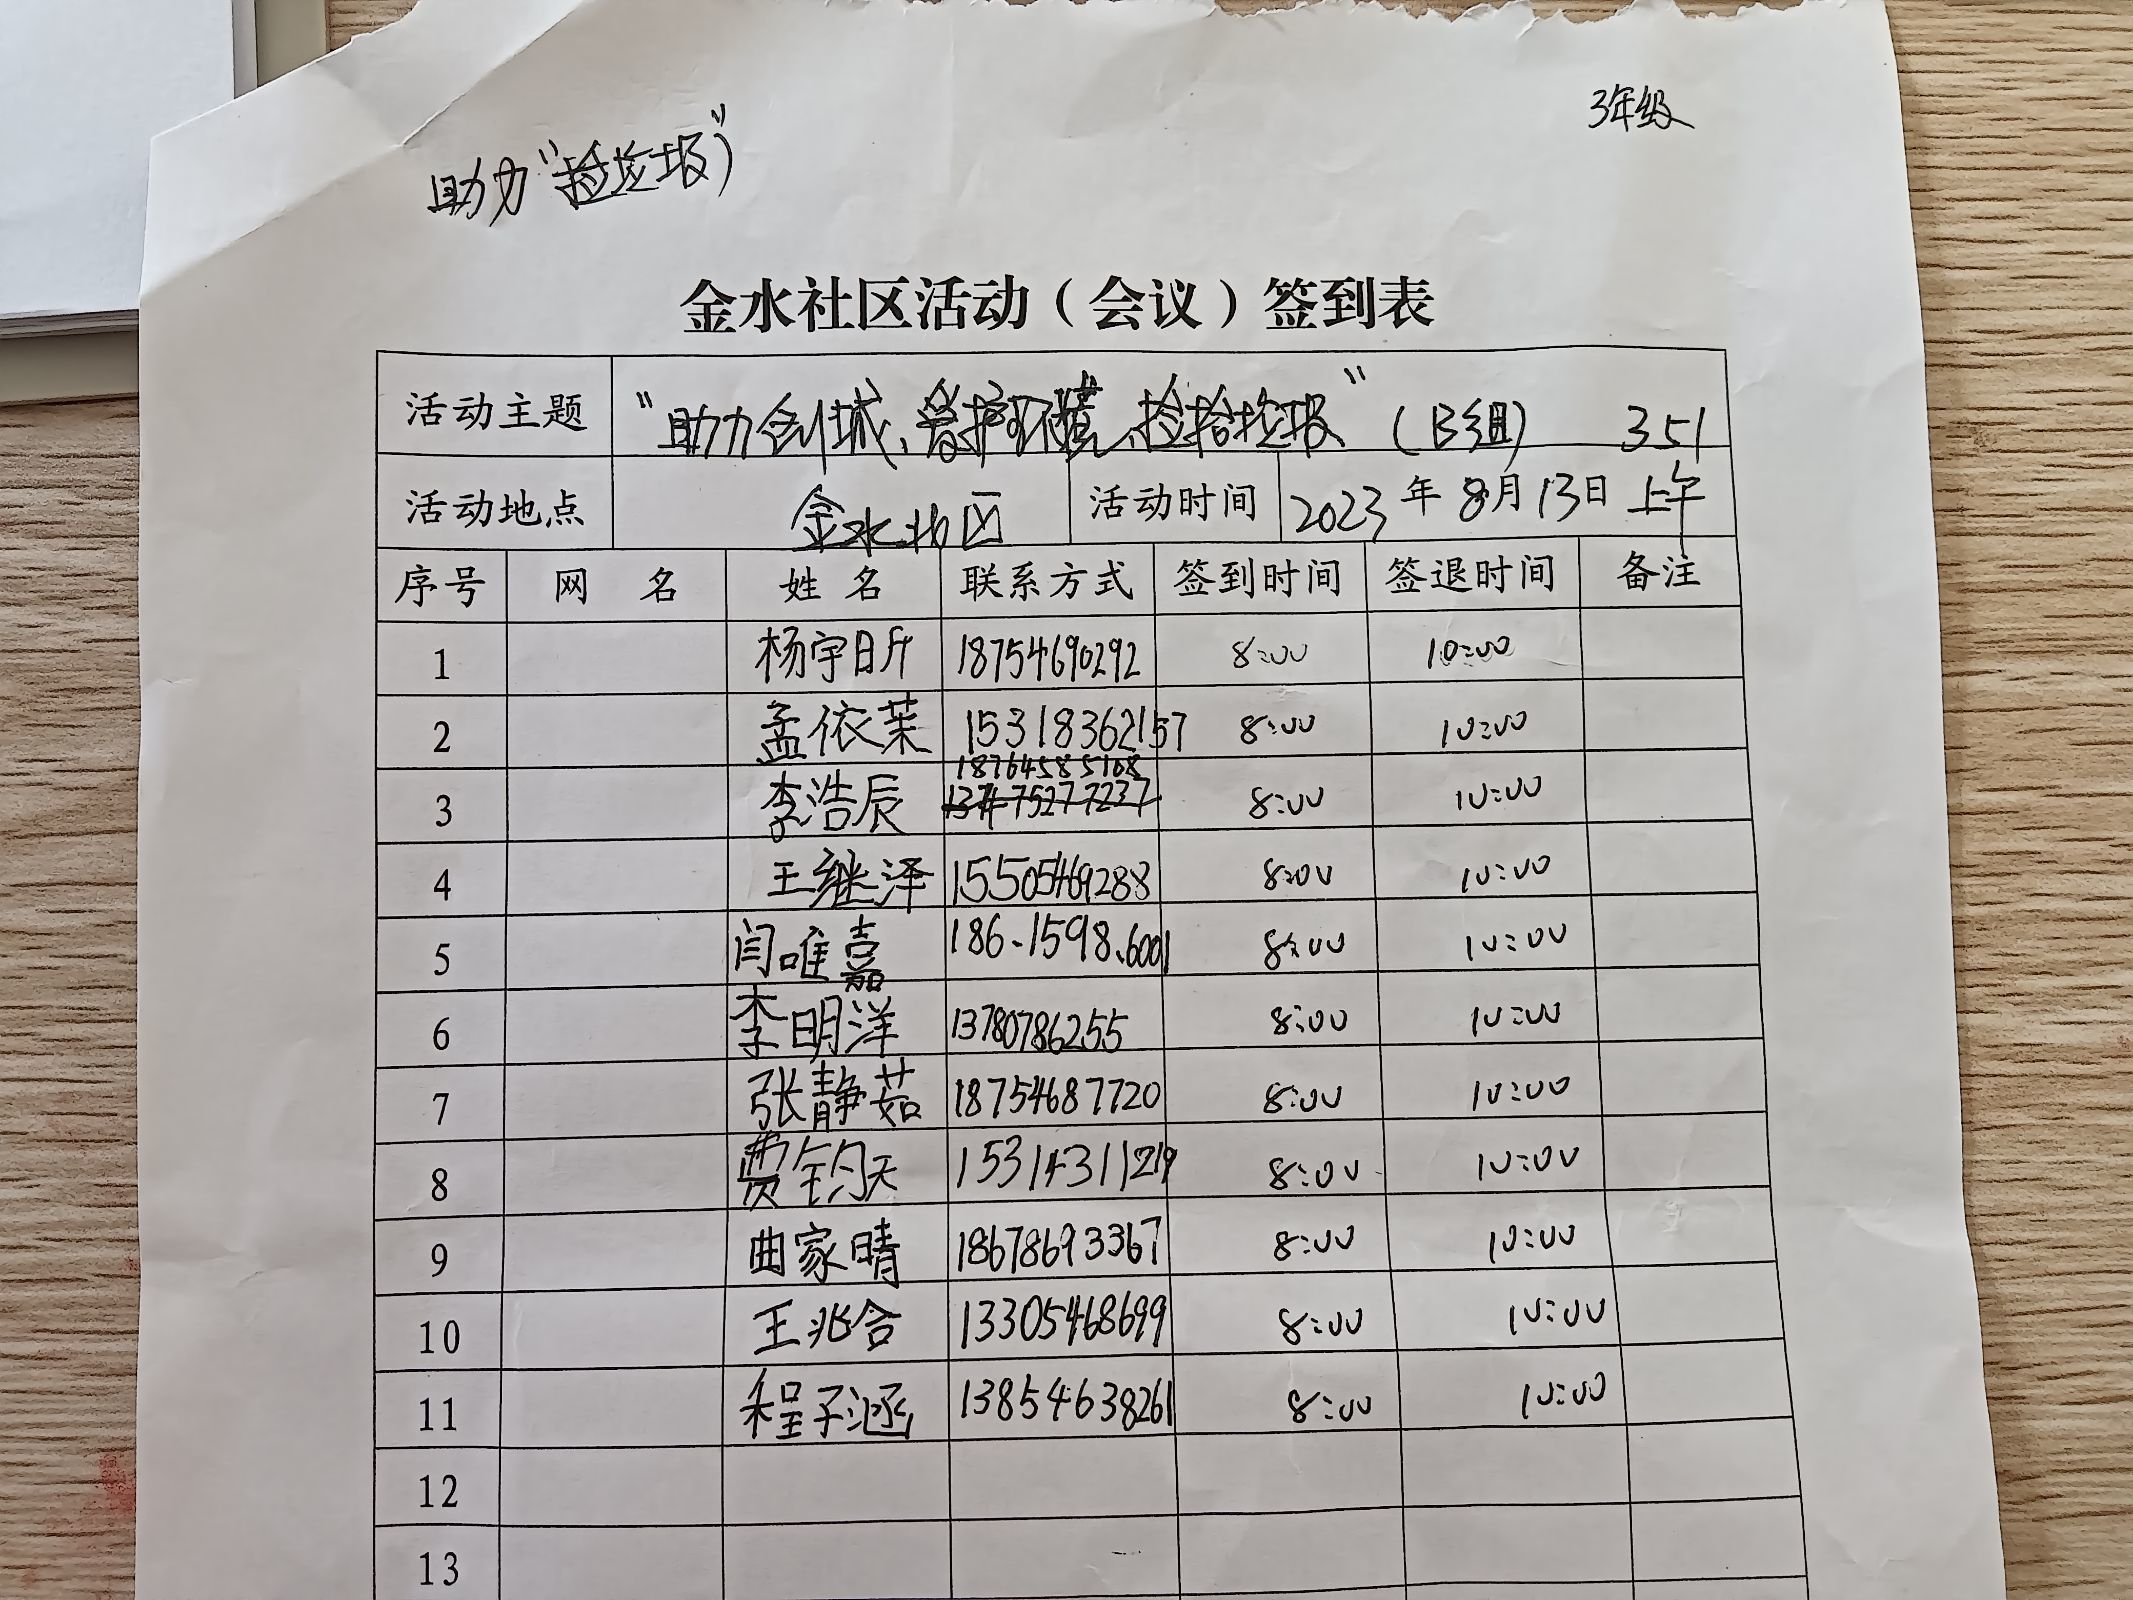 3年级
助力“捡垃圾”
金水社区活动（会议）签到表
活动主题 “助力创城、爱护环境、捡拾垃圾”（B组） 351
活动地点 金水北区 活动时间 2023年8月13日上午
序号 网 名 姓 名 联系方式 签到时间 签退时间 备注
1 杨宇昕 18754690292 8:00 10:00
2 孟依茉 15318362157 8:00 10:00
18764585108
3 李浩辰 8:00 10:00
4 王继泽 15505469288 8:00 10:00
5 闫唯嘉 186.1598.6001 8:00 10:00
6 李明洋 13780786255 8:00 10:00
7 张静茹 18754687720 8:00 10:00
8 贾钧天 15314311219 8:00 10:00
9 曲家晴 18678693367 8:00 10:00
10 王兆合 13305468699 8:00 10:00
11 程子涵 13854638261 8:00 10:00
12
13